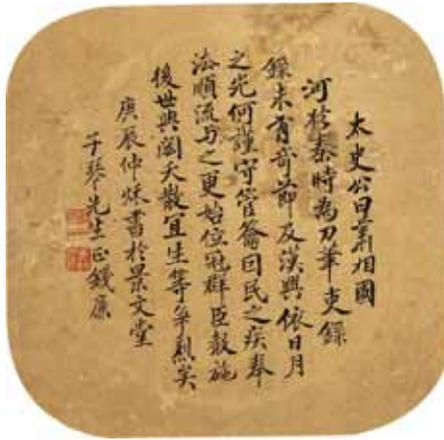 太史公曰蕭相國
何於秦時為刀筆吏錄
錄未有奇節及漢興依日月
之光何謹守管籥因民之疾奉
法順流与之更始位冠群臣聲施
後世與閎夭散宜生等爭烈矣
庚辰仲秌書於景文堂
子琴先生正 錢廉